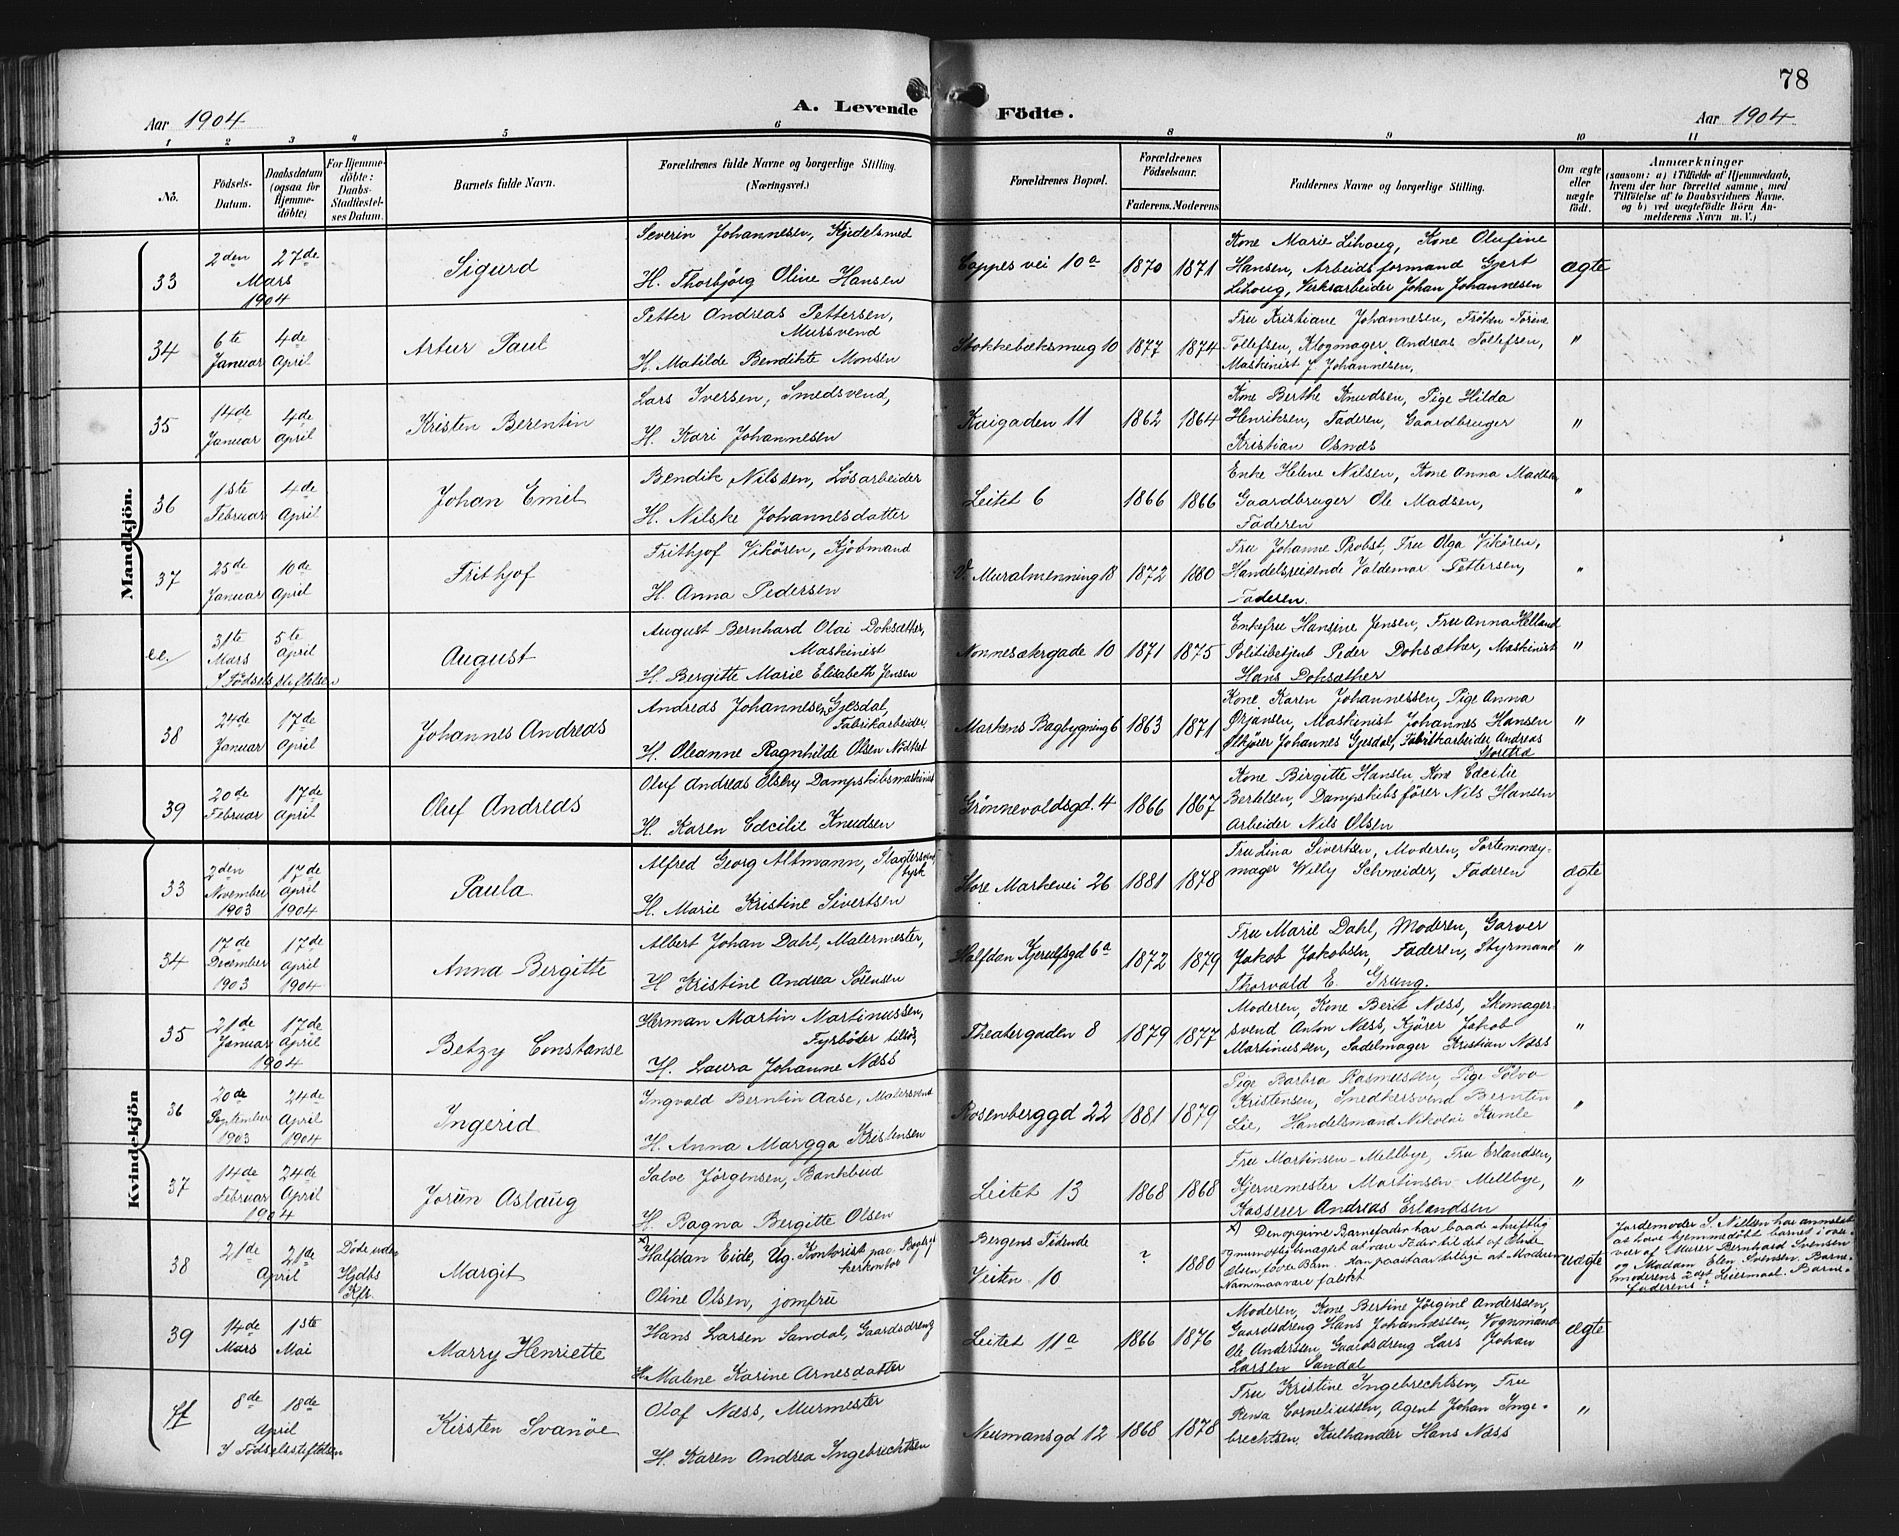 78
Aar 1904
A. Levende Födte.
Aar 1904
1 2 3 4 5 6 8 9 10 11
No.
Födsels-
Datum.
Daabsdatum
(ogsaa for
Hjemme-
döbte)
For Hjemme-
döbte:
Daabs-
Stadfæstel-
ses Datum.
Barnets fulde Navn.
Forældrenes fulde Navne og borgerlige Stilling.
(Næringsvei.)
Forældrenes Bopæl.
Forældrenes
Födselsaar.
Faderens. Moderens
Faddernes Navne og borgerlige Stilling.
Om ægte
eller
uægte
födt.
Anmærkninger
(saasom: a) i Tilfælde af Hjemmedaab,
hvem der har forrettet samme, med
Tilföielse af to Daabsvidners Navne.
og b) ved uægtefödte Börn An-
melderens Navn m. V.)
Mandkjön.
33
2den
Mars
1904
27de
Sigurd
Severin Johannesen, Kjedelsmed
H. Thorbjörg Oline Hansen
Coppes vei 10a
1870 1871
Kone Marie Lihoug, Kone Olufine
Hansen, Arbeidsformand Gjert
Lihoug, Verksarbeider Johan Johannesen
ægte
34
6te
Januar
4de
April
Artur Paul
Petter Andreas Pettersen,
Mursvend
H. Matilde Bendikte Monsen
Stokkebæksmug 10
1877 1874
Fru Kristiane Johannesen, Fröken Torine
Tollefsen, Klogmager Andreas Tollefsen,
Maskinist J. Johannesen.
"
35
14de
Januar
4de
April
Kristen Berentin
Lars Iversen, Smedsvend,
H. Kari Johannesen
Kaigaden 11
1862 1864
Kone Berthe Knudsen, Pige Hilda
Henriksen, Faderen, Gaardbruger
Kristian Osnæs
"
36
1ste
Februar
4de
April
Johan Emil
Bendik Nilssen, Lösarbeider
H. Nilske Johannesdatter
Leitet 6
1866 1866
Enke Helene Nilsen, Kone Anna Madsen
Gaardbruger Ole Madsen,
Faderen
"
37
25de
Januar
10de
April
Frithjof
Frithjof Vikören, Kjöbmand
H. Anna Pedersen
V. Muralmenning 18
1872 1880
Fru Johanne Probst, Fru Olga Vikören,
Handelsreisende Valdemar Pettersen,
Faderen.
"
ee.
31te
Mars
5te
April
I Födselsstiftelsen
August
August Bernhard Olai Doksæther,
Maskinist
H. Bergitte Marie Elisabeth Jensen
Nonnesætergade 10
1871 1875
Enkefru Hansine Jensen, Fru Anna Helland
Politibetjent Peder Doksæther, Maskinist
Hans Doksæther
"
38
24de
Januar
17de
April
Johannes Andreas
Andreas Johannesen Gjesdal,
Fabrikarbeider
H. Oleanne Ragnhilde Olsen Nödtvet
Markens Bagbygning 6
1863 1871
Kone Karen Johannessen, Pige Anna
Ørjansen, Maskinist Johannes Hansen
Ølkjører Johannes Gjesdal, Fabrikarbeider Andreas
"
39
20de
Februar
17de
April
Oluf Andreas
Oluf Andreas Olsen, Dampskibsmaskinist
H. Karen Cecilie Knudsen
Grønnevoldsgd. 4
1866 1867
Kone Birgitte Hansen, Kone Cecilie
Bertelsen, Dampskibsförer Nils Hansen
Arbeider Nils Olsen
Kvindekjön
33
2den
November
1903
17de
April
1904
Paula
Alfred Georg Altmann, Slagtersvend,
tysk
H. Marie Kristine Sivertsen
Store Markevei 26
1881 1878
Fru Lina Sivertsen, Moderen, Portemoney-
mager Willy Schneider, Faderen
ægte
34
17de
December
1903
17de
April
1904
Anna Bergitte
Albert Johan Dahl, Malermester,
H. Kristine Andrea Sörensen
Halfdan Kjerulfsgd 6a
1872 1879
Fru Marie Dahl, Moderen, Garver
Jakob Jakobsen, Faderen, Styrmand
Thorvald E. Grung.
"
35
21de
Januar
1904
17de
April
Betzy Constanse
Herman Martin Martinussen,
Fyrböder tilsös,
H. Laura Johanne Næss
Theatergaden 8
1879 1877
Moderen, Kone Berit Næss, Skomager-
svend Anton Næss, Kjörer Jakob
Martinussen, Sadelmager Kristian Næss
"
36
20de
September
1903
24de
April
1904
Ingerid
Ingvald Berntin Aase, Malersvend
H. Anna Margga Kristensen
Rosenberggd 22
1881 1879
Pige Barbra Rasmussen, Pige Solva
Kristensen, Snedkersvend Berntin
Lie, Handelsmand Nikolai Kumle
"
37
14de
Februar
1904
24de
April
Jorun Aslaug
Salve Jörgensen, Bankbud
H. Ragna Bergitte Olsen
Leitet 13
1868 1868
Fru Martinsen-Mellbye, Fru Erlandsen,
Gjernemester Martinsen-Mellbye,
Kasserer Andreas Erlandsen
"
38
21de
April
21de
Döde uden
Hjdbs
Kft.
Margit
x) Halfdan Eide, Ug. Kontorist paa
Oline Olsen, jomfru
Bergens Tidende
Veiten 10
? 1880
x) Den opgivne Barnefader har baade skriftlig
og mundtlig benægtet at være Fader til det af Oline
Olsen födte Barn. Han paastaar tillige at Moderens
Navn maa være falskt
uægte
Jordemoder S. Nielsen har anmeldt
at have hjemmedöbt barnet i over-
vær af Murer Bernhard Svensen
og Madam Elen Svensen. Barne-
moderens 2det Leiermaal. Barne-
faderens?
39
14de
Mars
1ste
Mai
Marry Henriette
Hans Larsen Sandal, Gaardsdreng
H. Malene Karine Arnesdatter
Leitet 11a
1866 1876
Moderen, Kone Bertine Jörgine Anderssen,
Gaardsdreng Hans Johannessen, Vognmand
Ole Andersen, Gaardsdreng Lars Johan
Larsen Sandal
ægte
ff
8de
April
18de
I Födselsstiftelsen
Kirsten Svanöe
Olaf Næss, Murmester
H. Karen Andrea Ingebrechtsen
Neumansgd 12
1868 1878
Fru Kristine Ingebrechtsen, Fru
Rensa Corneliussen, Agent Johan Inge-
brechtsen, Kulhandler Hans Næss
"